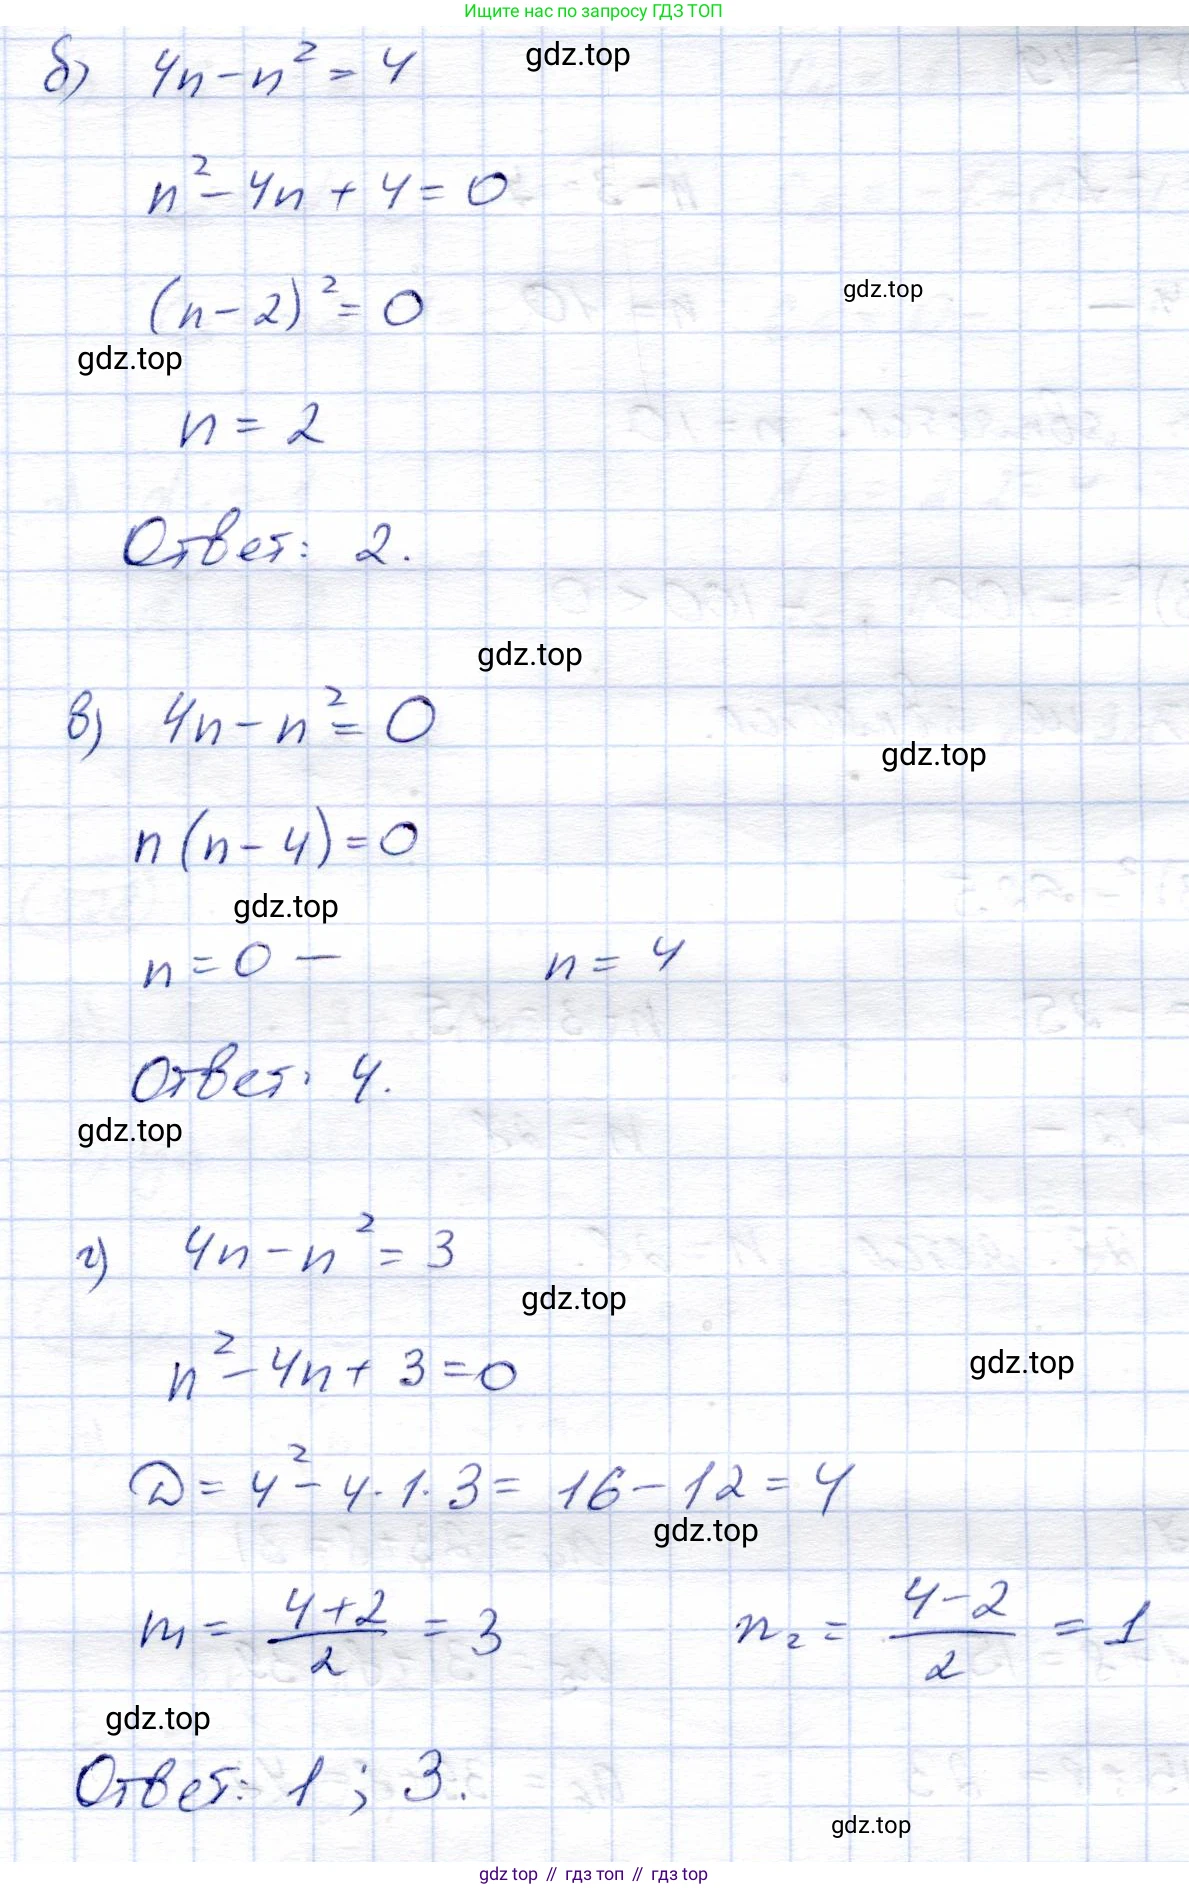 Ищите нас по запросу ГДЗ ТОП
б) 4n - n² = 4
gdz.top
n² - 4n + 4 = 0
(n - 2)² = 0
gdz.top
gdz.top
n = 2
Ответ: 2.
gdz.top
в) 4n - n² = 0
gdz.top
n(n - 4) = 0
gdz.top
n = 0 — n = 4
Ответ: 4.
gdz.top
г) 4n - n² = 3
gdz.top
n² - 4n + 3 = 0
gdz.top
D = 4² - 4·1·3 = 16 - 12 = 4
gdz.top
n₁ = (4+2)/2 = 3 n₂ = (4-2)/2 = 1
gdz.top
Ответ: 1; 3.
gdz.top
gdz top // гдз топ // гдз top